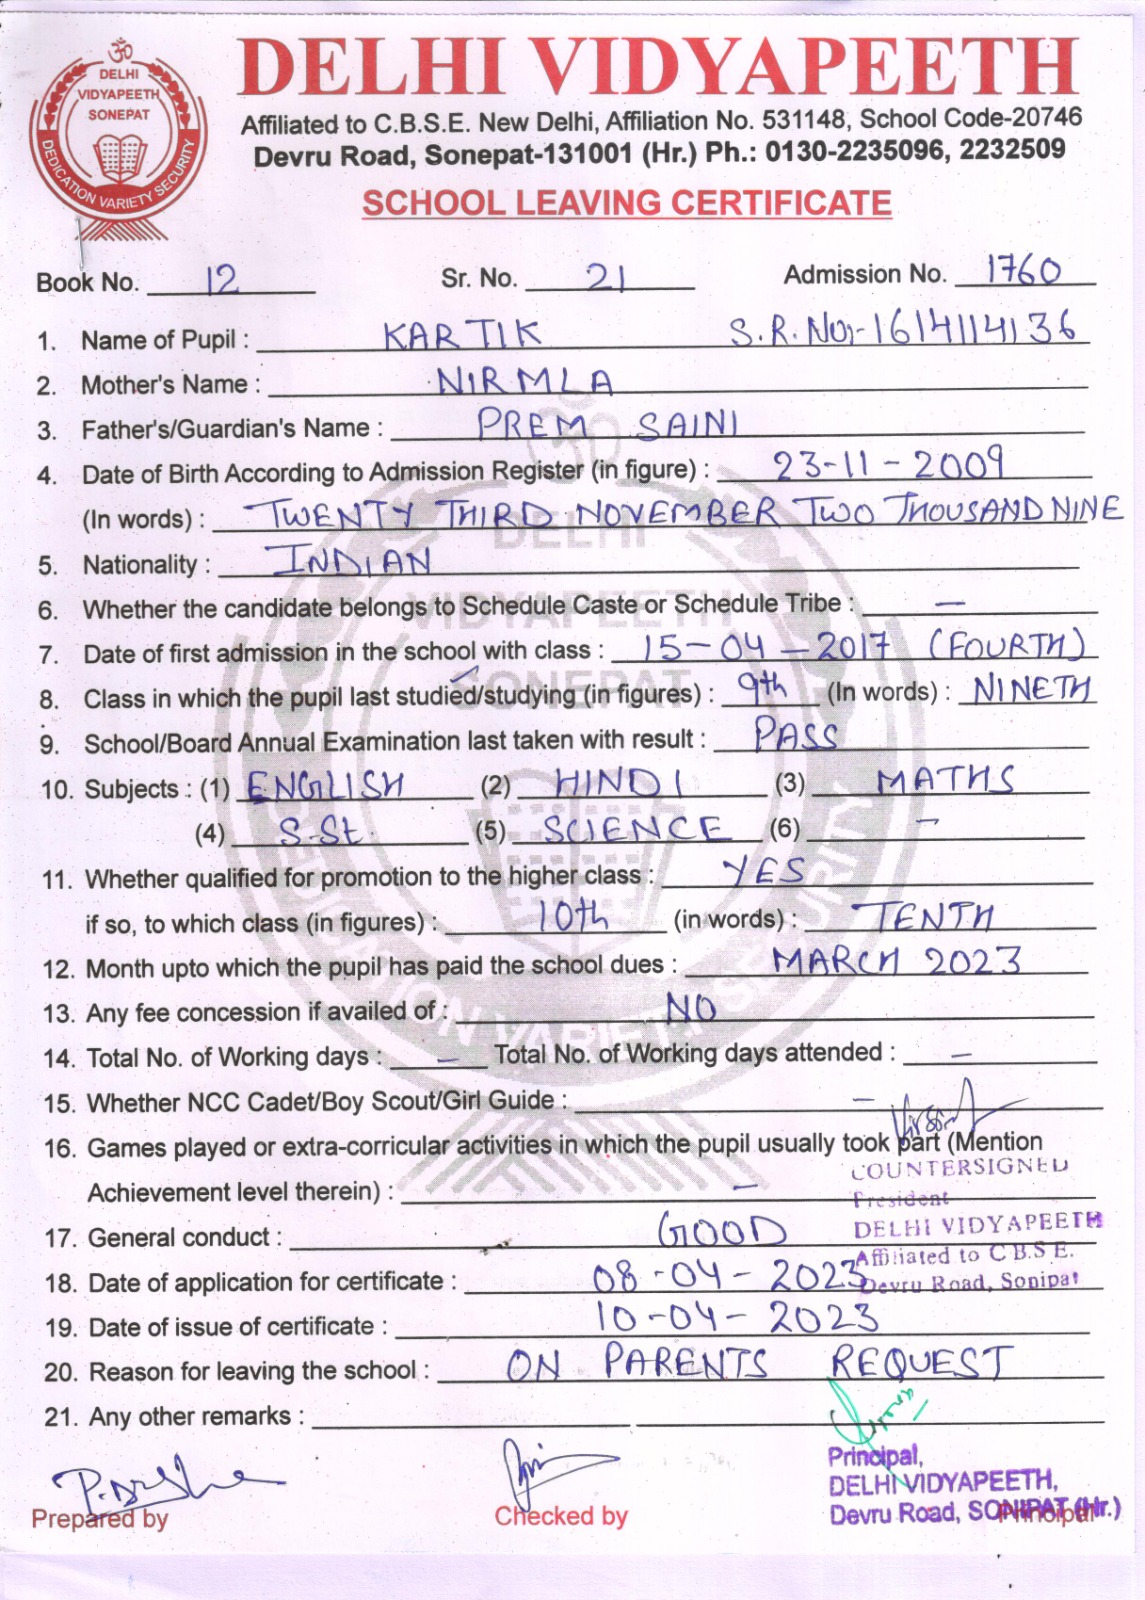 ॐ
DELHI
VIDYAPEETH
SONEPAT
DEDICATION VARIETY SECURITY
DELHI VIDYAPEETH
Affiliated to C.B.S.E. New Delhi, Affiliation No. 531148, School Code-20746
Devru Road, Sonepat-131001 (Hr.) Ph.: 0130-2235096, 2232509
SCHOOL LEAVING CERTIFICATE
Book No. 12 Sr. No. 21 Admission No. 1760
1. Name of Pupil : KARTIK S.R.No:-1614114136
2. Mother's Name : NIRMLA
3. Father's/Guardian's Name : PREM SAINI
4. Date of Birth According to Admission Register (in figure) : 23-11-2009
(In words) : TWENTY THIRD NOVEMBER TWO THOUSAND NINE
5. Nationality : INDIAN
6. Whether the candidate belongs to Schedule Caste or Schedule Tribe : —
7. Date of first admission in the school with class : 15-04-2017 (FOURTH)
8. Class in which the pupil last studied/studying (in figures) : 9th (In words) : NINETH
9. School/Board Annual Examination last taken with result : PASS
10. Subjects : (1) ENGLISH (2) HINDI (3) MATHS
(4) S.St. (5) SCIENCE (6) —
11. Whether qualified for promotion to the higher class : YES
if so, to which class (in figures) : 10th (in words) : TENTH
12. Month upto which the pupil has paid the school dues : MARCH 2023
13. Any fee concession if availed of : NO
14. Total No. of Working days : — Total No. of Working days attended : —
15. Whether NCC Cadet/Boy Scout/Girl Guide : —
16. Games played or extra-corricular activities in which the pupil usually took part (Mention
COUNTERSIGNED
Achievement level therein) : —
President
DELHI VIDYAPEETH
17. General conduct : GOOD
Affiliated to C.B.S.E.
Devru Road, Sonipat
18. Date of application for certificate : 08-04-2023
19. Date of issue of certificate : 10-04-2023
20. Reason for leaving the school : ON PARENTS REQUEST
21. Any other remarks :
Principal,
DELHI VIDYAPEETH,
Devru Road, SONIPAT (Hr.)
Prepared by Checked by Principal